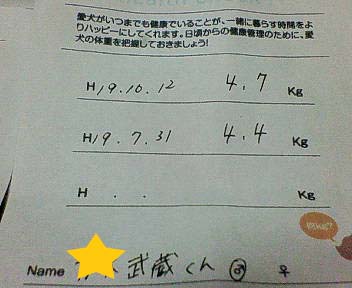 愛犬がいつまでも健康でいることが、一緒に暮らす時間をよ
りハッピーにしてくれます。日頃からの健康管理のために、愛
犬の体重を把握しておきましょう!
H19.10.12 4.7 Kg
H19.7.31 4.4 Kg
H . . Kg
Name 武蔵くん ♂ ♀